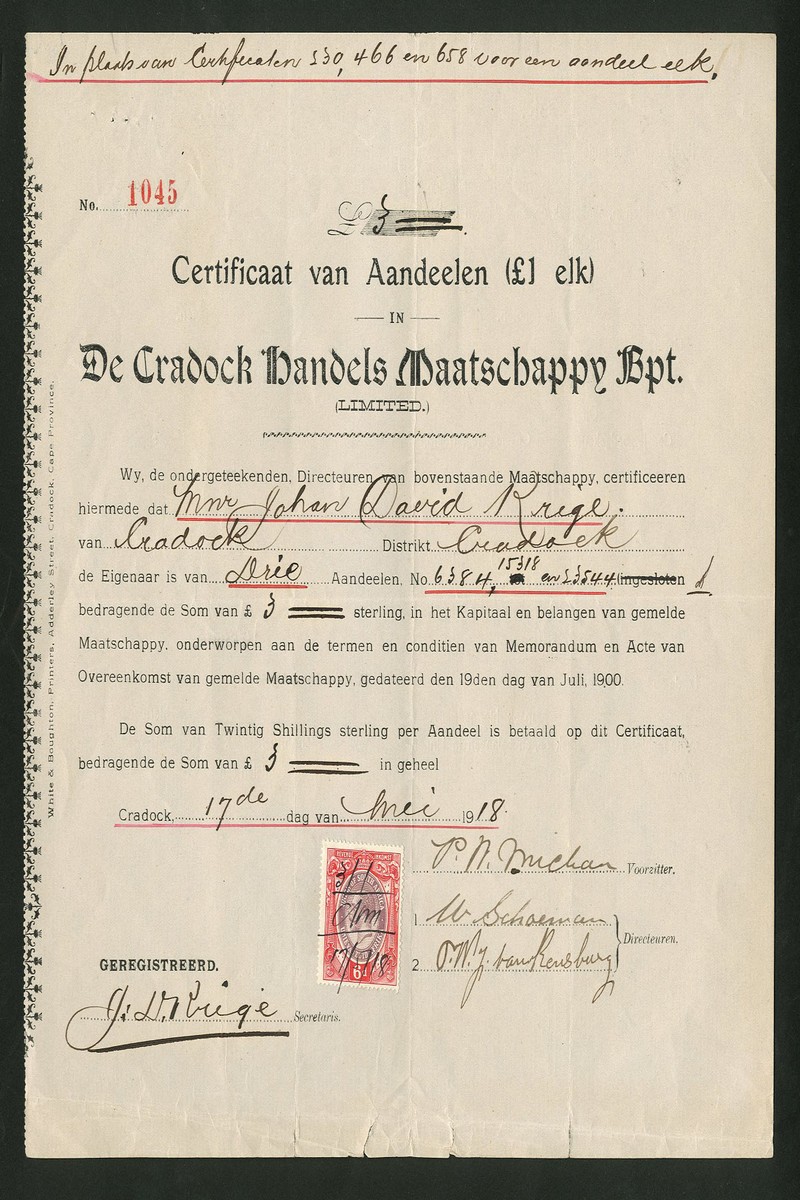 In plaats van Certificaten 530, 466 en 658 voor een aandeel elk.
No. 1045
£3
Certificaat van Aandeelen (£1 elk)
IN
De Cradock Handels Maatschappy Bpt.
(LIMITED.)
Wy, de ondergeteekenden, Directeuren van bovenstaande Maatschappy, certificeeren
hiermede dat Mnr Johan David Krige.
van Cradock Distrikt Cradock
de Eigenaar is van Drie Aandeelen, No 6384, 15318 en 23544 (ingesloten
bedragende de Som van £ 3 sterling, in het Kapitaal en belangen van gemelde
Maatschappy, onderworpen aan de termen en conditien van Memorandum en Acte van
Overeenkomst van gemelde Maatschappy, gedateerd den 19den dag van Juli, 1900.
De Som van Twintig Shillings sterling per Aandeel is betaald op dit Certificaat,
bedragende de Som van £ 3 in geheel
Cradock, 17de dag van Mei 1918.
Voorzitter.
1 W Schoeman
2 P.W.J. van Rensburg
Directeuren.
REVENUE INKOMST
CHM
17/5/18
6d
GEREGISTREERD.
J: D. Krige Secretaris.
White & Boughton, Printers, Adderley Street, Cradock, Cape Province.